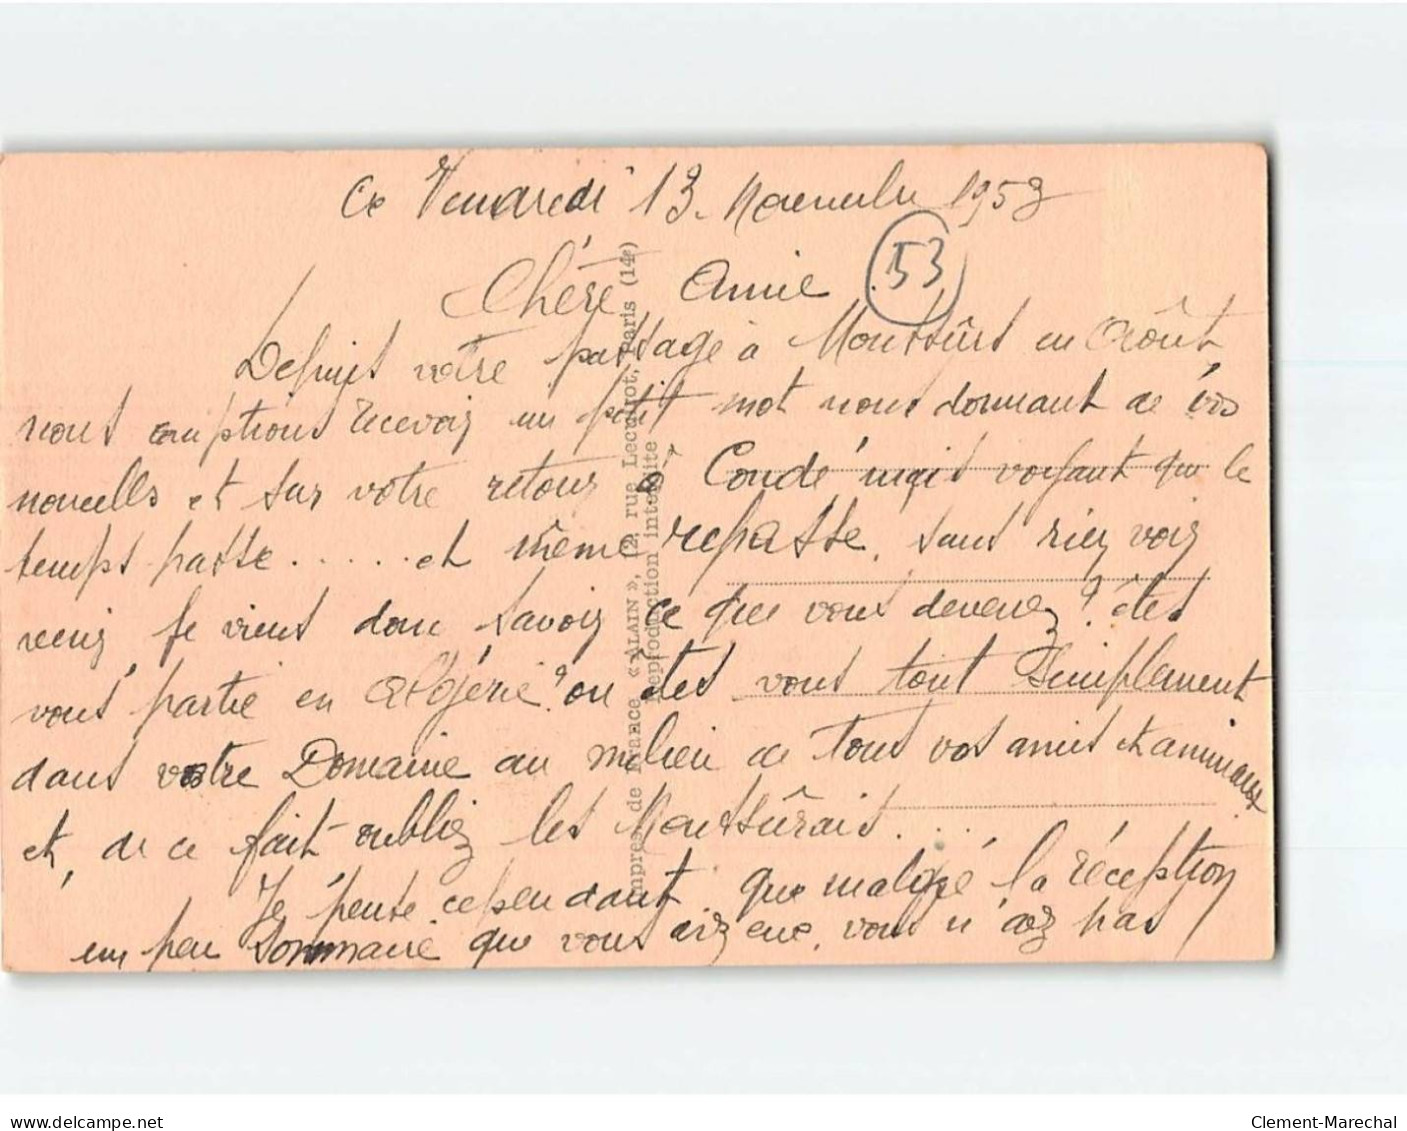 Ce Vendredi 13 Novembre 1953
Chère Amie
53
Depuis votre passage à Montsûrs en Août,
nous comptions recevoir un petit mot nous donnant de vos
nouvelles et sur votre retour à Condé mais voyant que le
temps passe ..... et même repasse, sans rien voir
venir, je viens donc savoir ce que vous devenez? êtes
vous partie en Algérie? ou êtes vous tout simplement
dans votre Domaine au milieu de tous vos amis et animaux
et, de ce fait oubliez les Montsûrais...
Je pense cependant que malgré la réception
un peu sommaire que vous ayez eue, vous n'avez pas
Impres. de France « ALAIN », 12, rue Lecuirot, Paris (14e)
Reproduction interdite
www.delcampe.net
Clement-Marechal